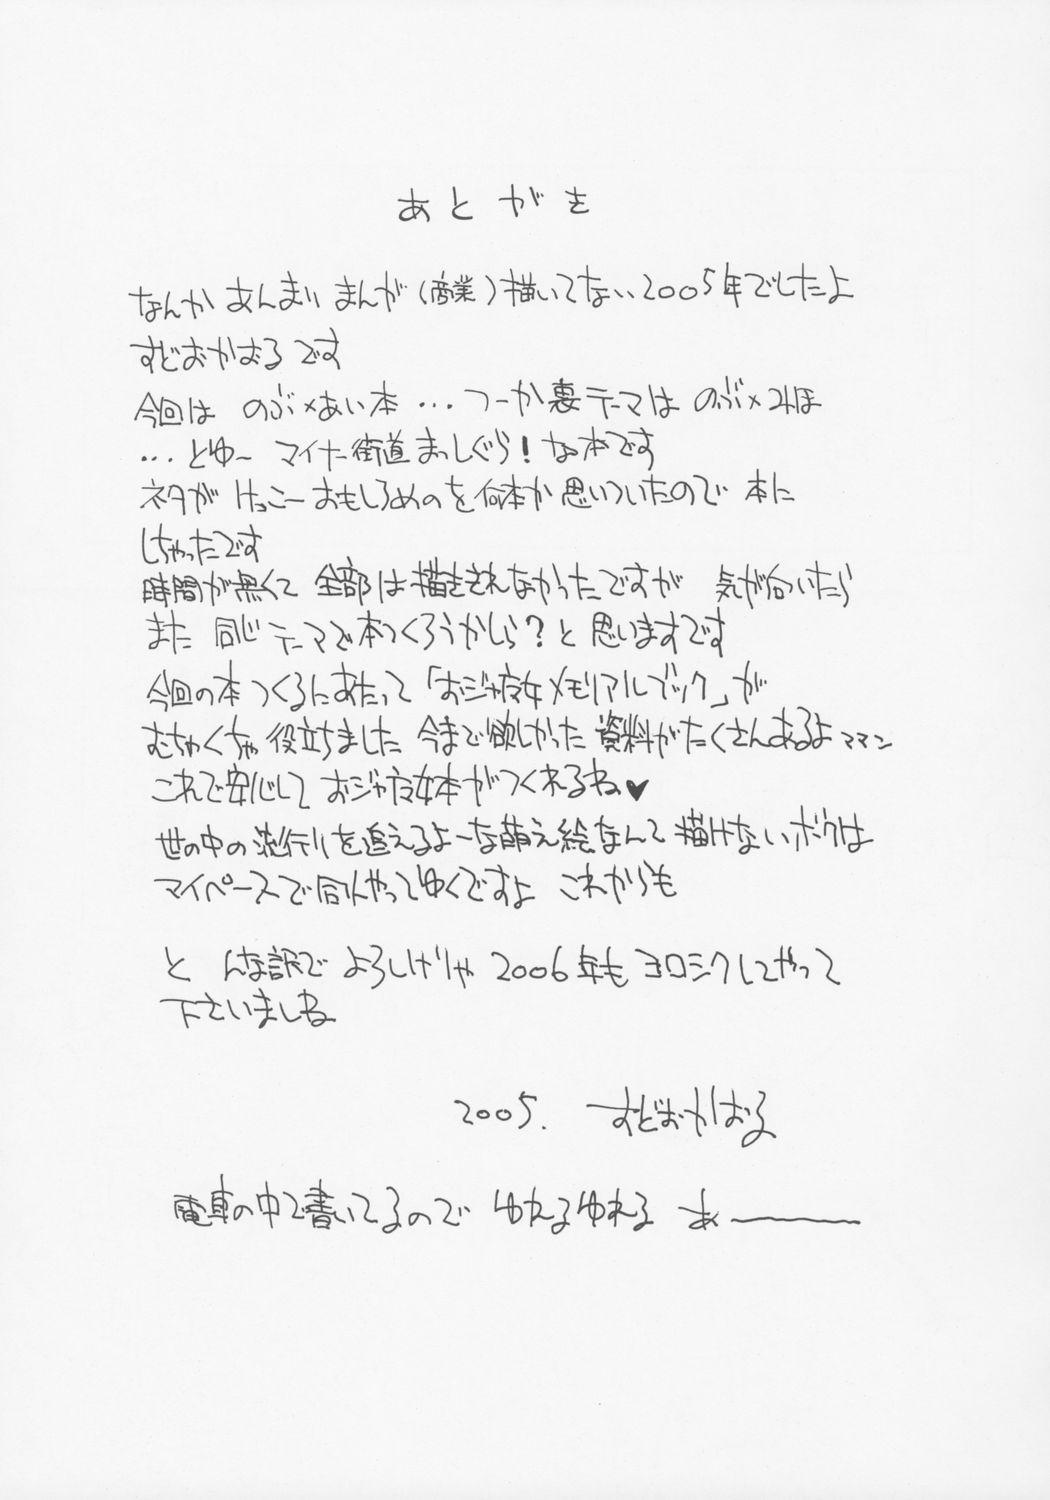 あとがき
なんか あんまり まんが(商業)描いてない2005年でしたよ
すどおかおるです
今回は のぶ×あい本 …つーか裏テーマは のぶ×みほ
…とゆ〜 マイナー街道まっしぐら!な本です
ネタが けっこーおもしろめのを何本か思いついたので 本に
しちゃったです
時間が無くて 全部は描ききれなかったですが 気が向いたら
また 同じテーマで本つくろうかしら?と思いますです
今回の本つくるにあたって「おジャ魔女メモリアルブック」が
むちゃくちゃ役立ちました 今まで欲しかった資料がたくさんあるよママン
これで安心して おジャ魔女本がつくれるね♥
世の中の流行りを追えるよーな萌え絵なんて描けないボクは
マイペースで同人やってゆくですよ これからも
と んな訳で よろしけりゃ 2006年もヨロシクしてやって
下さいましね
2005. すどおかおる
電車の中で書いてるので ゆれるゆれる あ―――